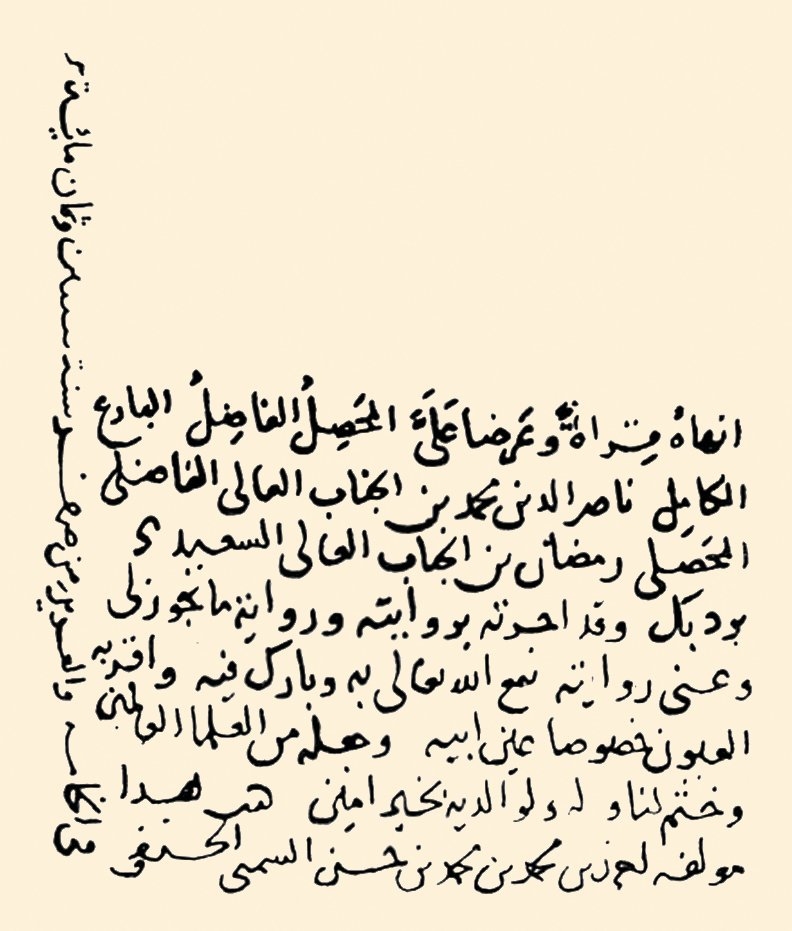 انهاه قراةً وعرضا عَلَيَّ المحَصِلُ الفاضِلُ البارع
الكامِل ناصر الدين محمد بن الجناب العالى الفاضلى
المحَصِلى رمضان بن الجناب العالى السعيدى
بردبك وقد اجزته بروايته ورواية ما يجوز لى
وعنى روايته نفع الله تعالى به وبارك فيه واقر به
العيون خصوصا عين ابيه وجعله من العلما العاملين
وختم لنا و له ولوالديه بخير امين كتب هذا
مولفه محمد بن محمد بن حسن الشمنى الحنفى
فى الخامس والعشرين من صفر سنة ستين وثمان مائية